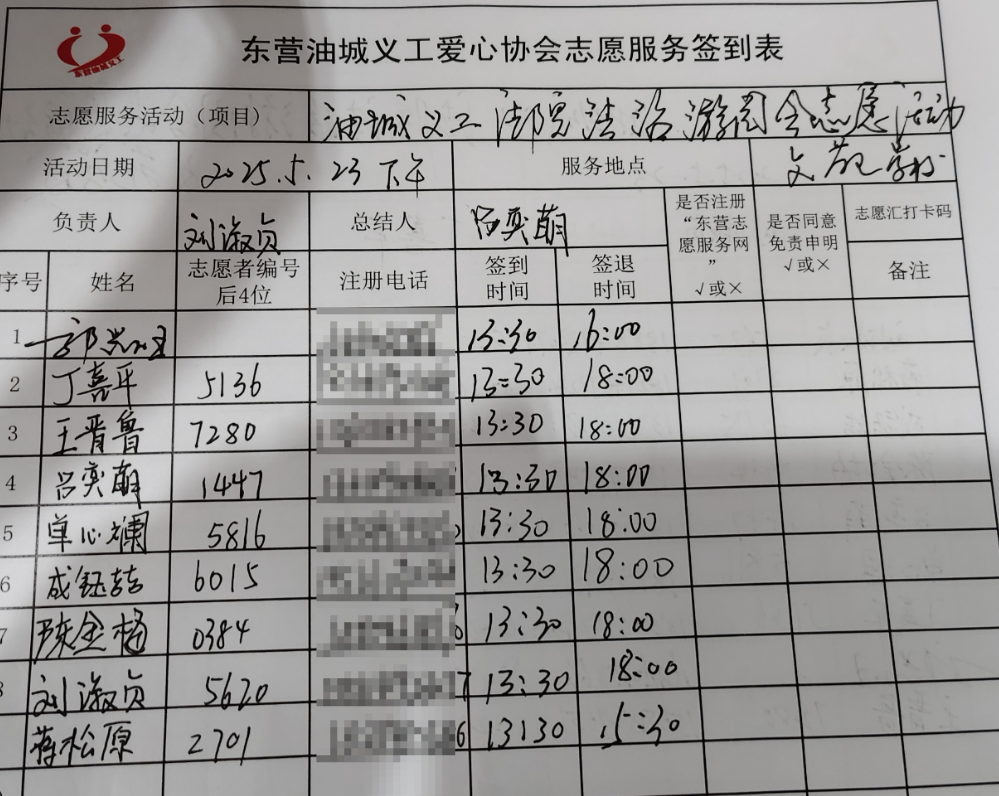 东营油城义工
东营油城义工爱心协会志愿服务签到表
志愿服务活动（项目） 油城义工法院法治游园会志愿活动
活动日期 2025.5.23下午 服务地点 文苑学校
负责人 刘淑贞 总结人 吕奕萌 是否注册“东营志愿服务网”√或× 是否同意免责申明√或× 志愿汇打卡码
序号 姓名 志愿者编号后4位 注册电话 签到时间 签退时间 备注
1 13:30 16:00
2 丁嘉平 5136 13:30 18:00
3 王晋鲁 7280 13:30 18:00
4 吕奕萌 1447 13:30 18:00
5 单心斓 5816 13:30 18:00
6 成钰喆 6015 13:30 18:00
7 陈金杨 0384 13:30 18:00
8 刘淑贞 5620 13:30 18:00
蒋松原 2701 13:30 15:30